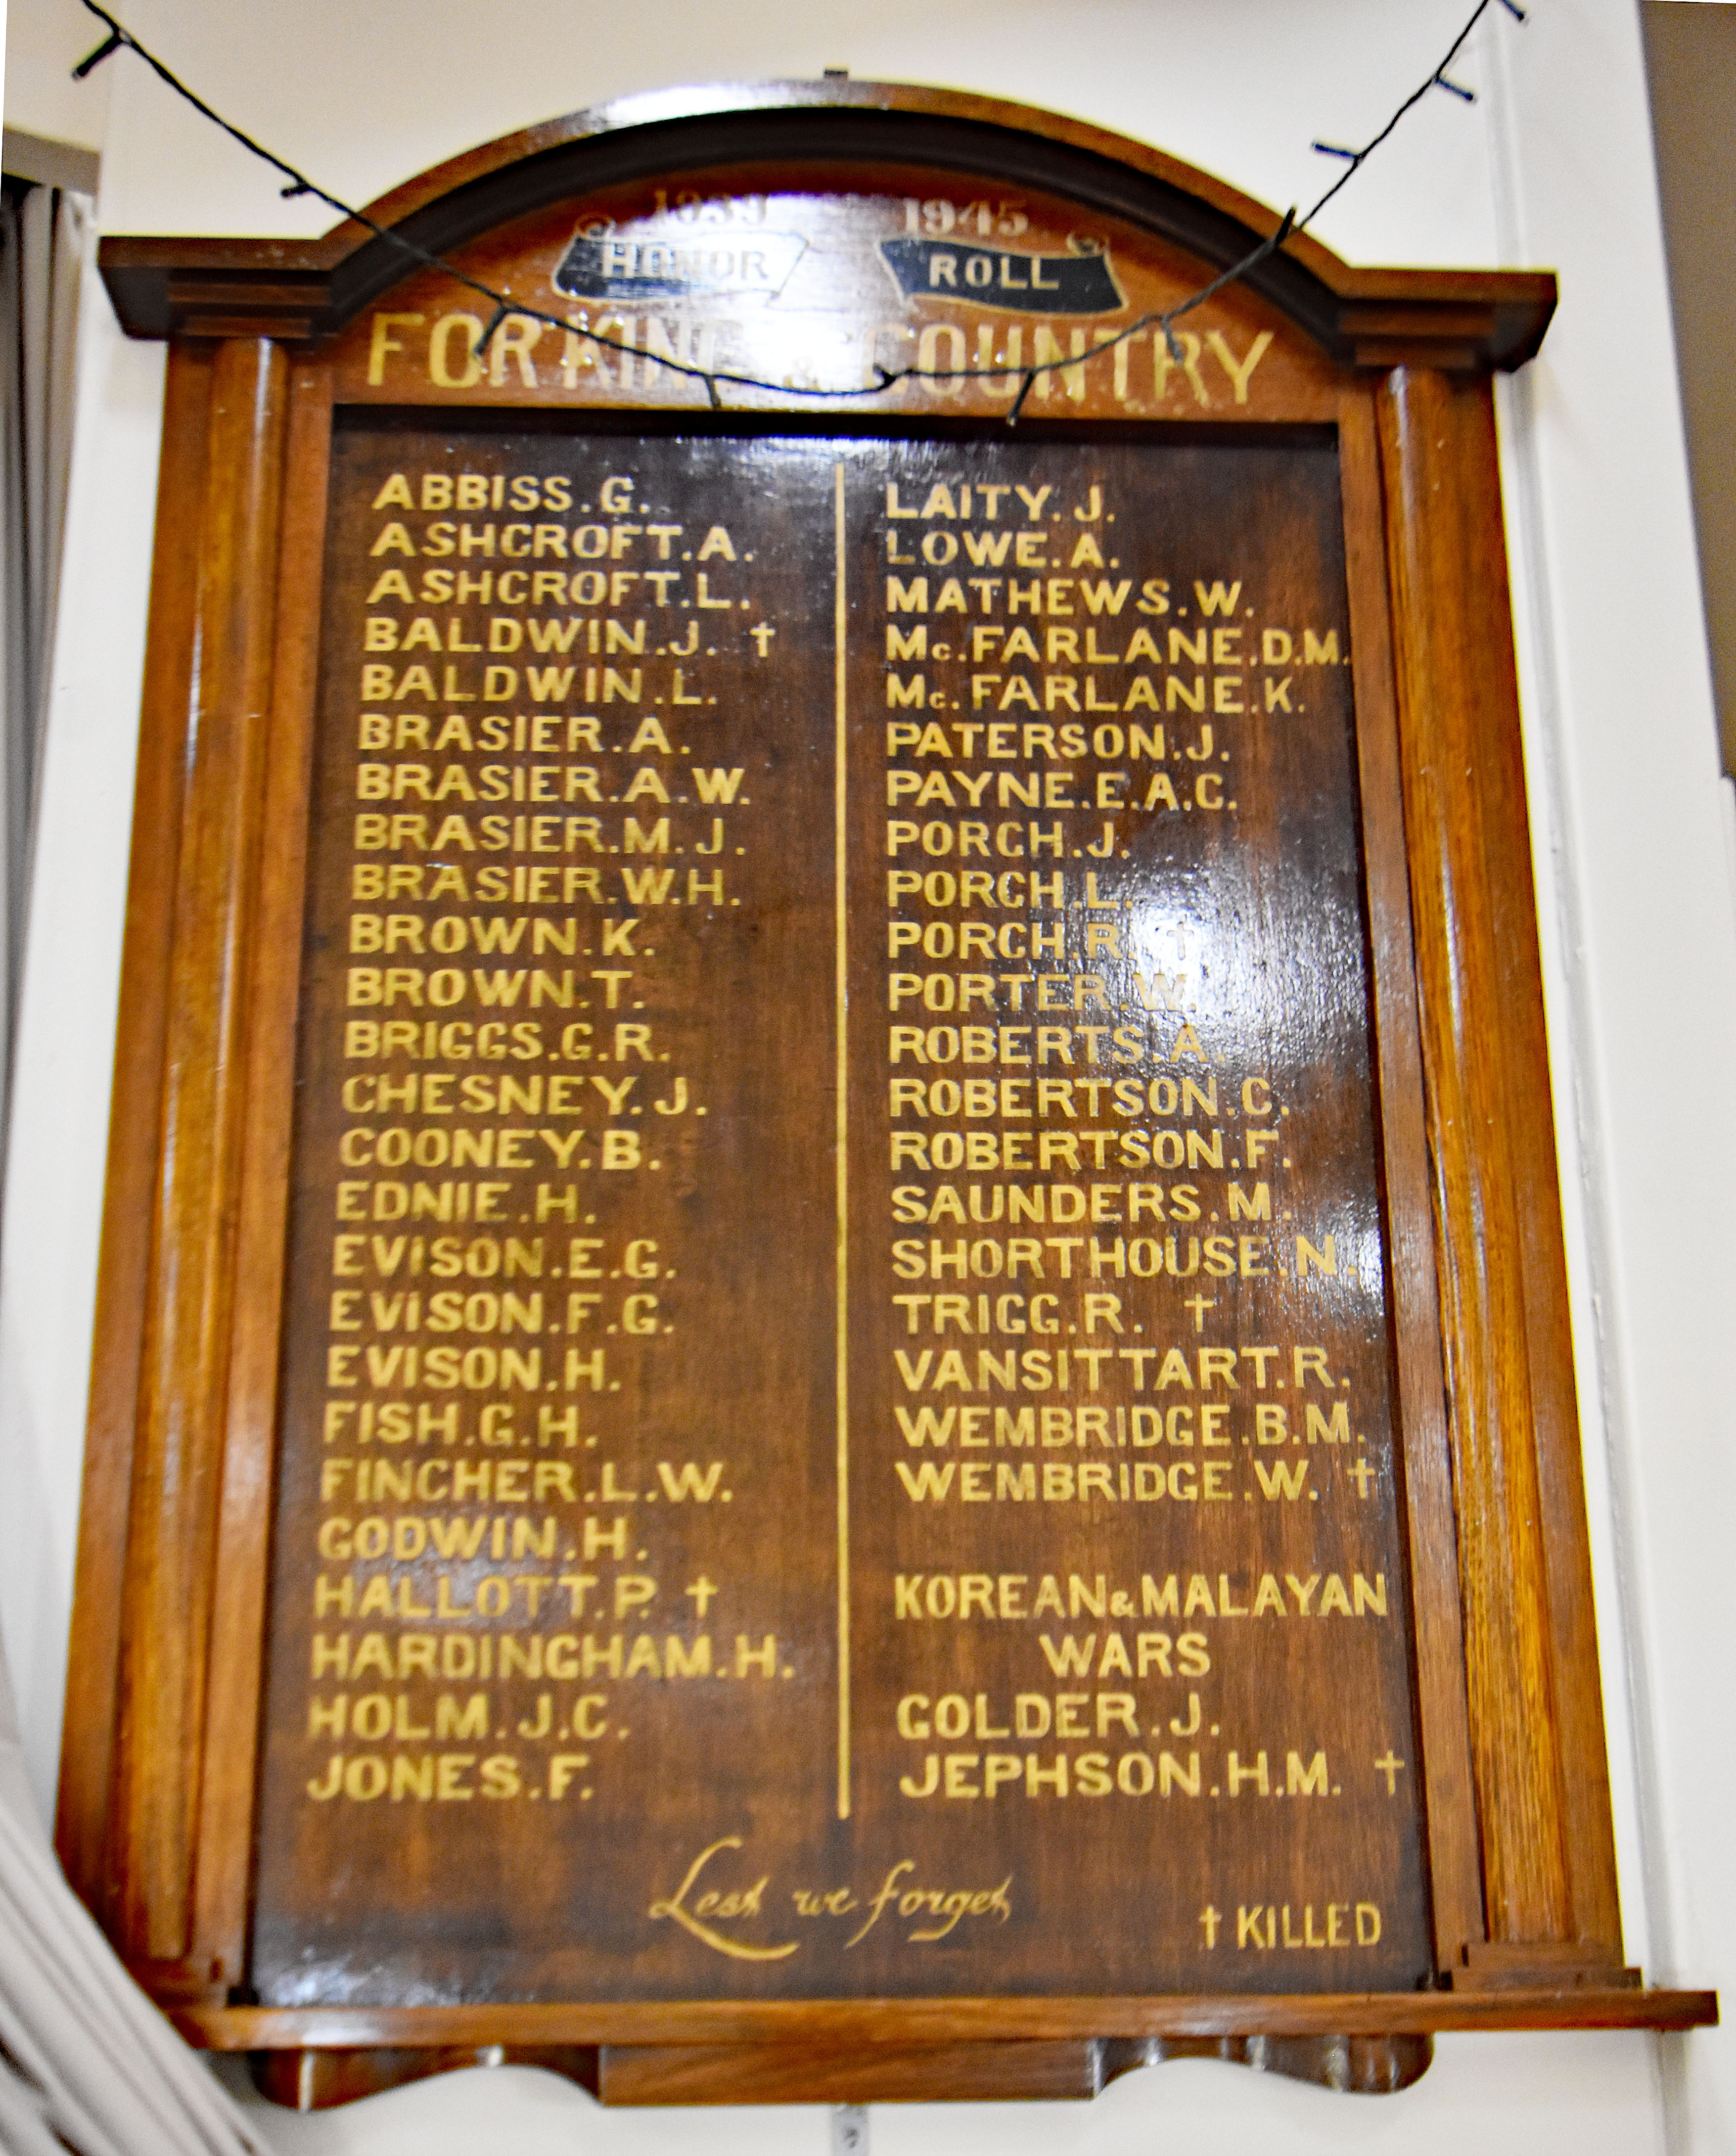 1939 1945
HONOR ROLL
FOR KING & COUNTRY
ABBISS.G.
ASHCROFT.A.
ASHCROFT.L.
BALDWIN.J. †
BALDWIN.L.
BRASIER.A.
BRASIER.A.W.
BRASIER.M.J.
BRASIER.W.H.
BROWN.K.
BROWN.T.
BRIGGS.G.R.
CHESNEY.J.
COONEY.B.
EDNIE.H.
EVISON.E.G.
EVISON.F.G.
EVISON.H.
FISH.G.H.
FINCHER.L.W.
GODWIN.H.
HALLOTT.P. †
HARDINGHAM.H.
HOLM.J.C.
JONES.F.
LAITY.J.
LOWE.A.
MATHEWS.W.
Mc.FARLANE.D.M.
Mc.FARLANE.K.
PATERSON.J.
PAYNE.E.A.C.
PORCH.J.
PORCH.L.
PORCH.R. †
PORTER.W.
ROBERTS.A.
ROBERTSON.C.
ROBERTSON.F.
SAUNDERS.M.
SHORTHOUSE.N.
TRIGG.R. †
VANSITTART.R.
WEMBRIDGE.B.M.
WEMBRIDGE.W. †
KOREAN & MALAYAN
WARS
GOLDER.J.
JEPHSON.H.M. †
Lest we forget
† KILLED